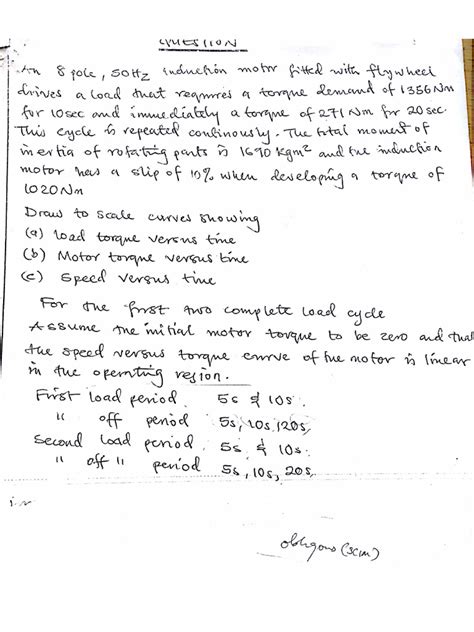 QUESTION
An 8 pole, 50Hz induction motor fitted with flywheel
drives a load that requires a torque demand of 1356Nm
for 10sec and immediately a torque of 271Nm for 20sec.
This cycle is repeated continously. The total moment of
inertia of rotating parts is 1690 Kgm² and the induction
motor has a slip of 10% when developing a torque of
1020Nm
Draw to scale curves showing
(a) load torque versus time
(b) Motor torque versus time
(c) Speed versus time
For the first two complete load cycle
Assume the initial motor torque to be zero and that
the speed versus torque curve of the motor is linear
in the operating region.
First load period 5s & 10s.
" off period 5s, 10s, 20s,
Second load period. 5s & 10s.
" off " period 5s, 10s, 20s,
(scim)